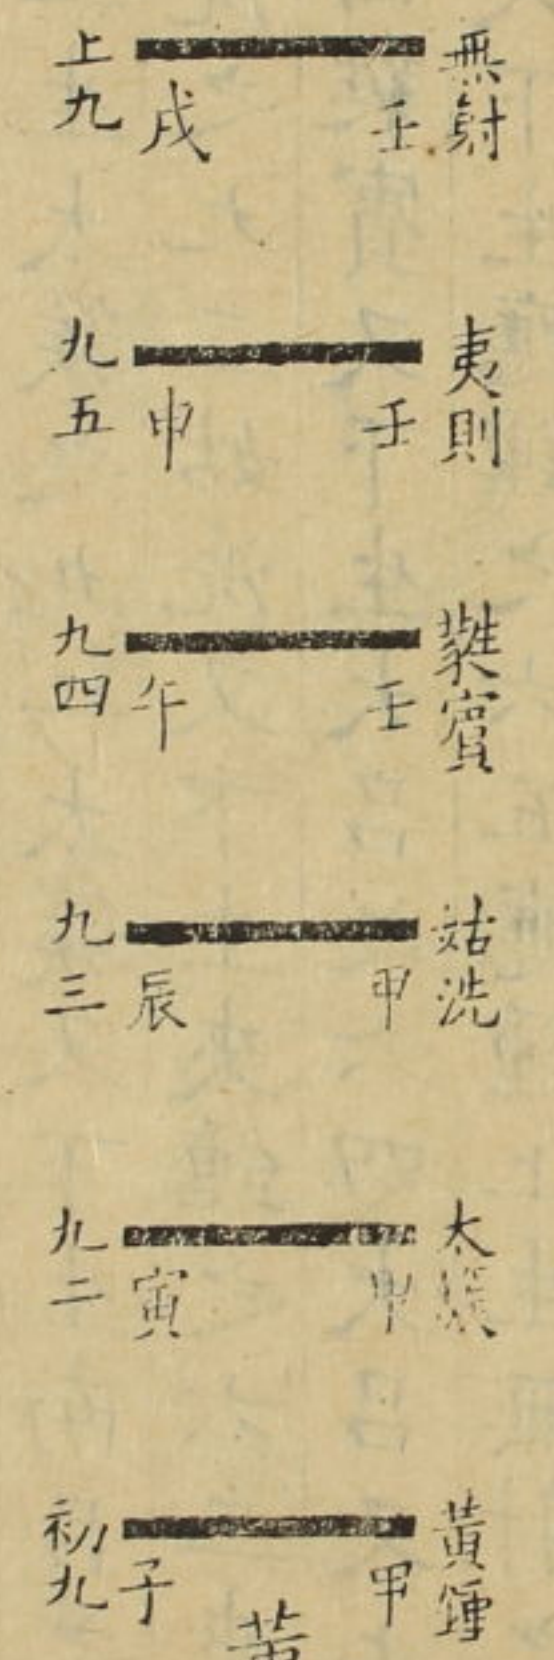 無射
壬
戌
上九
夷則
壬
申
九五
蕤賓
壬
午
九四
姑洗
甲
辰
九三
太簇
甲
寅
九二
黃鍾
甲
子
初九
黃